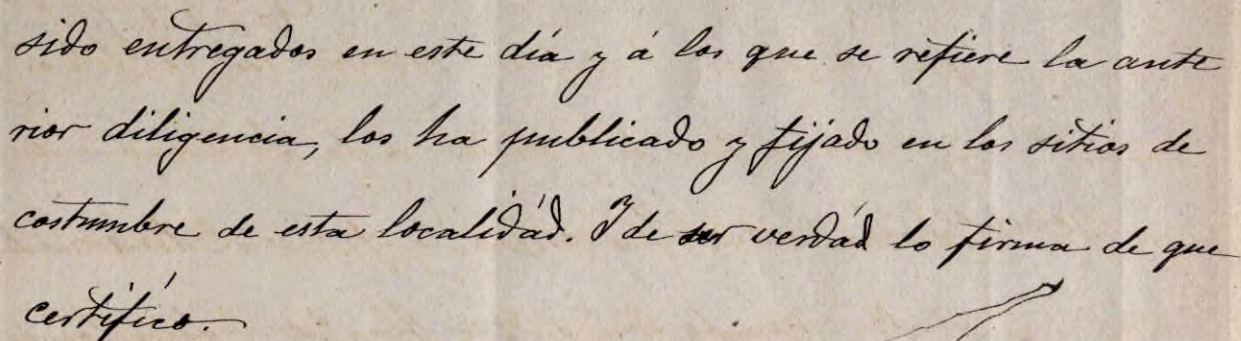 sido entregados en este día y á los que se refiere la ante
rior diligencia, los ha publicado y fijado en los sitios de
costumbre de esta localidád. Y de ser verdád lo firma de que
certifico.